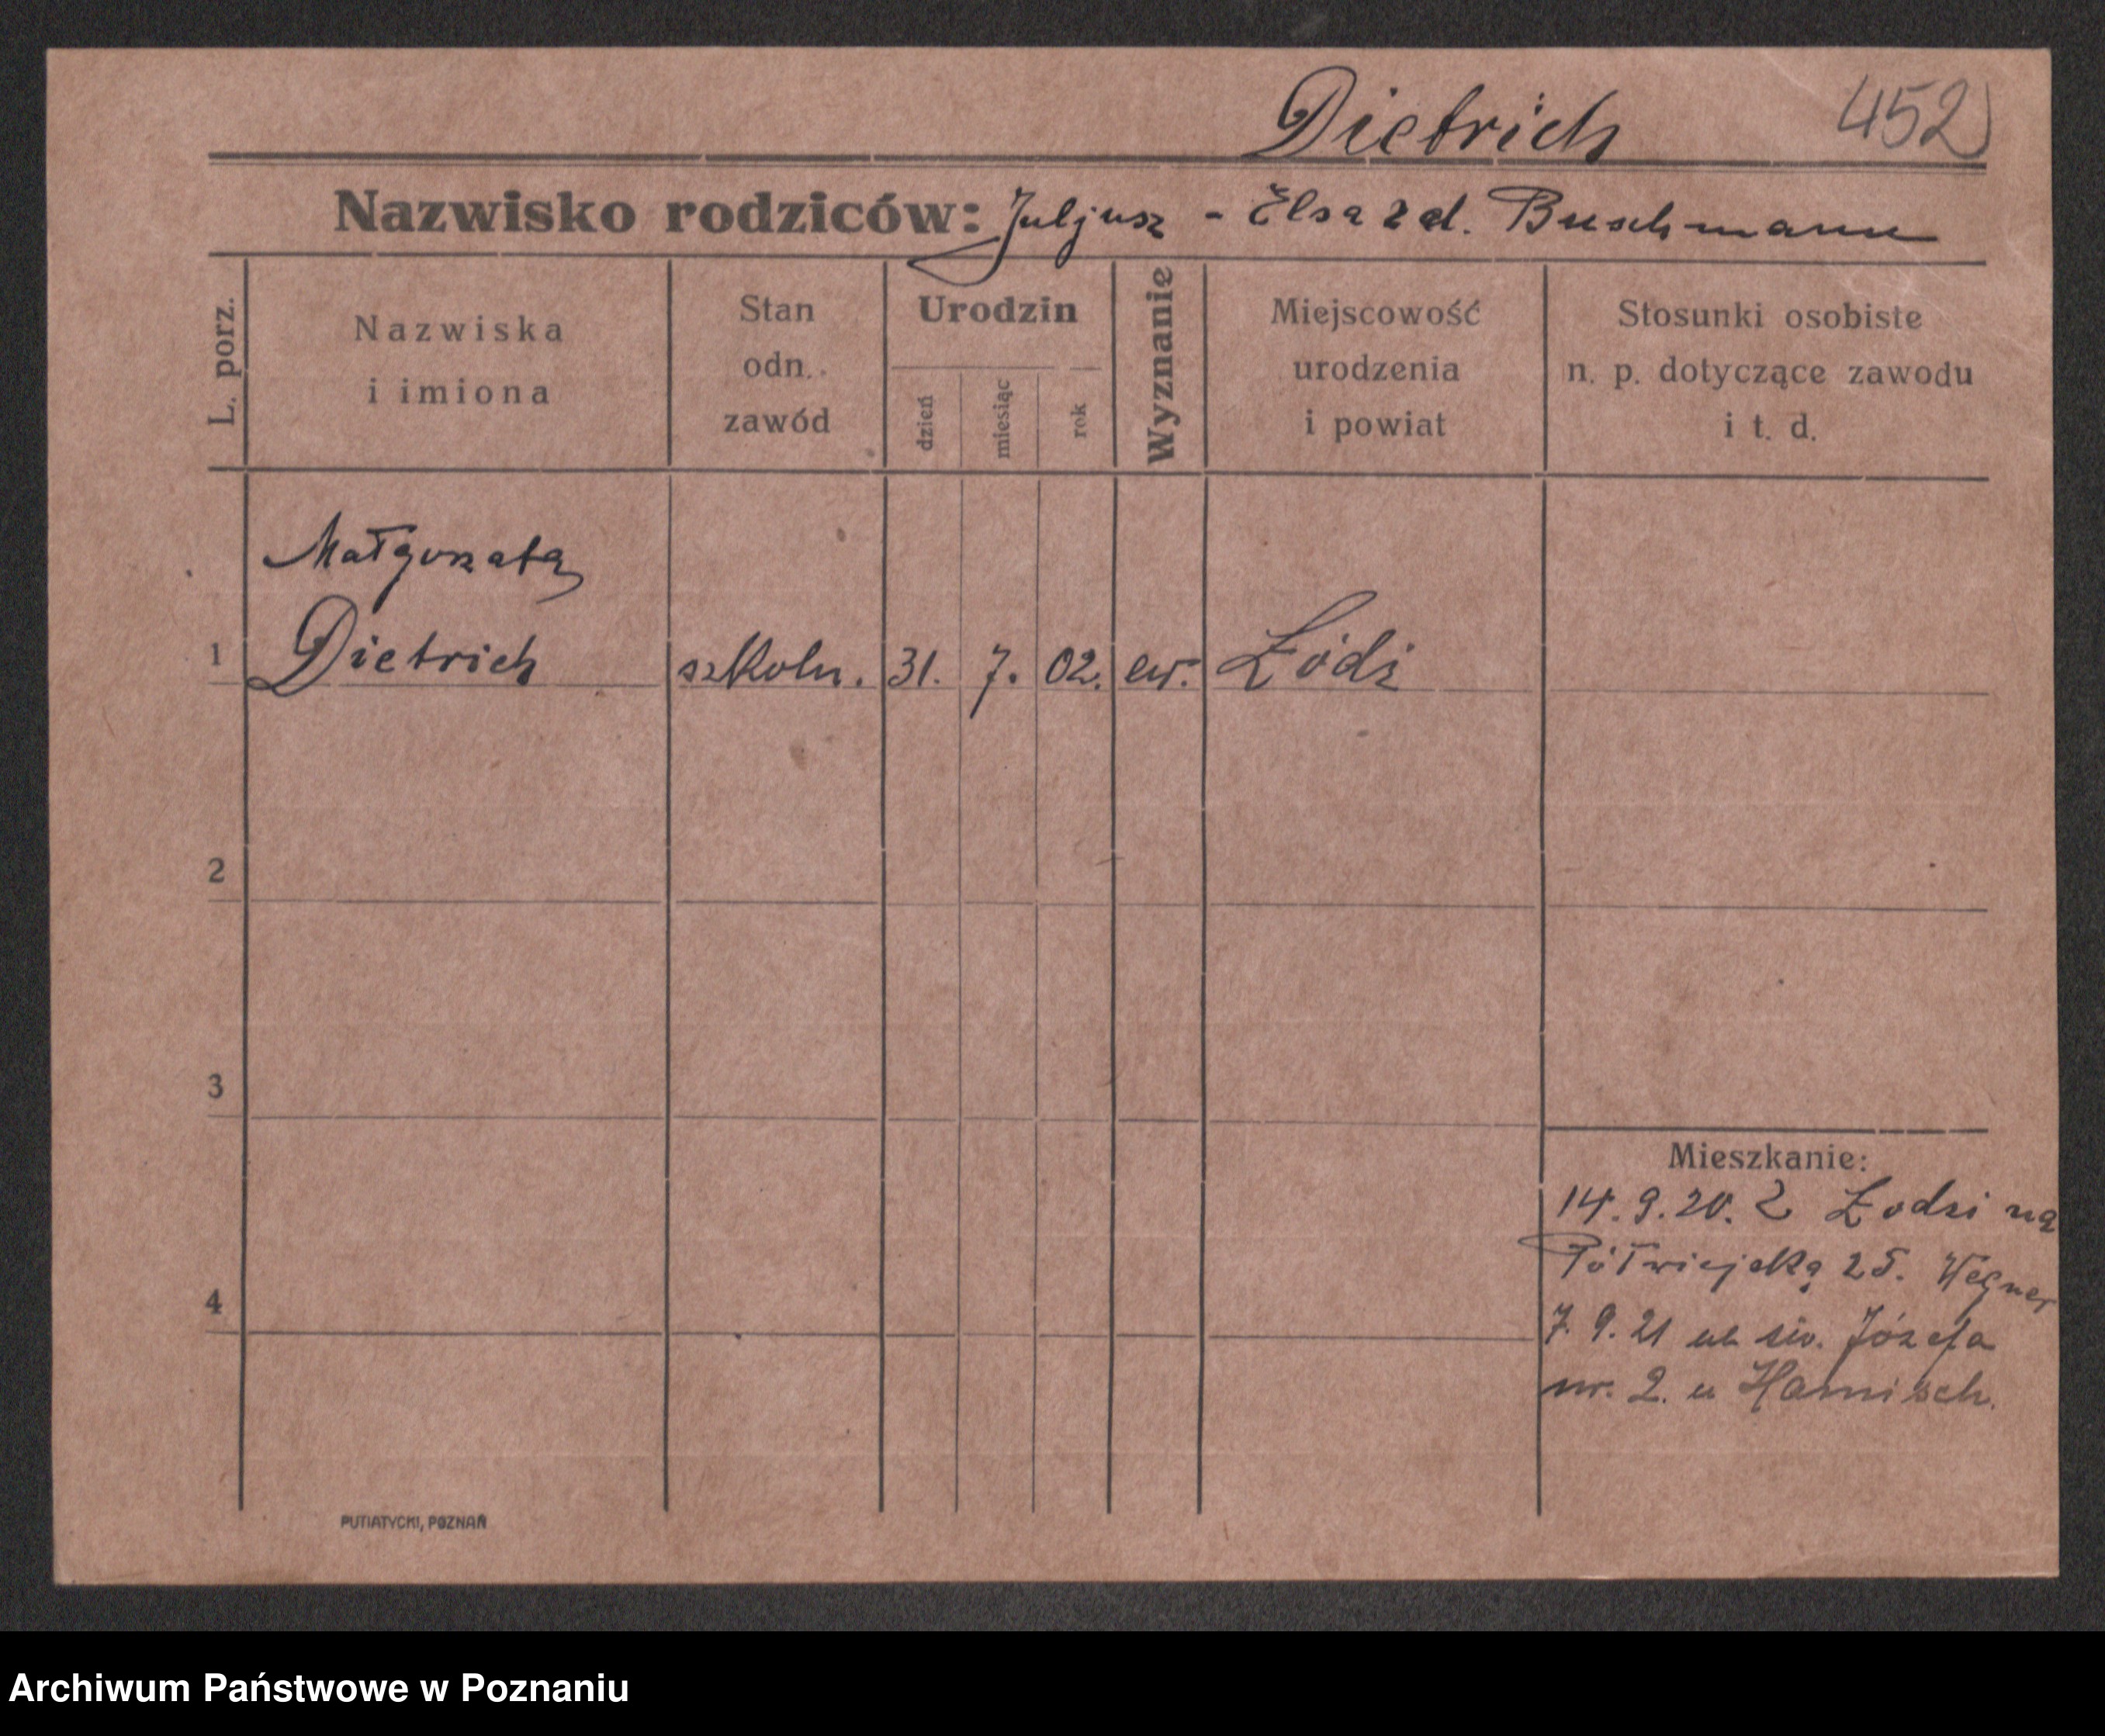 Dietrich 452
Nazwisko rodziców: Juljusz - Elsa zd. Buschmann
L. porz.
Nazwiska
i imiona
Stan
odn.
zawód
Urodzin
dzień
miesiąc
rok
Wyznanie
Miejscowość
urodzenia
i powiat
Stosunki osobiste
n. p. dotyczące zawodu
i t. d.
Małgorzata
1 Dietrich szkoln. 31. 7. 02. ew. Łódź
2
3
4
Mieszkanie:
14.9.20. Z Łodzi na
Półwiejską 25. Wegner
7.9.21 ul. św. Józefa
nr. 2. u Harnisch.
PUTIATYCKI, POZNAŃ
Archiwum Państwowe w Poznaniu